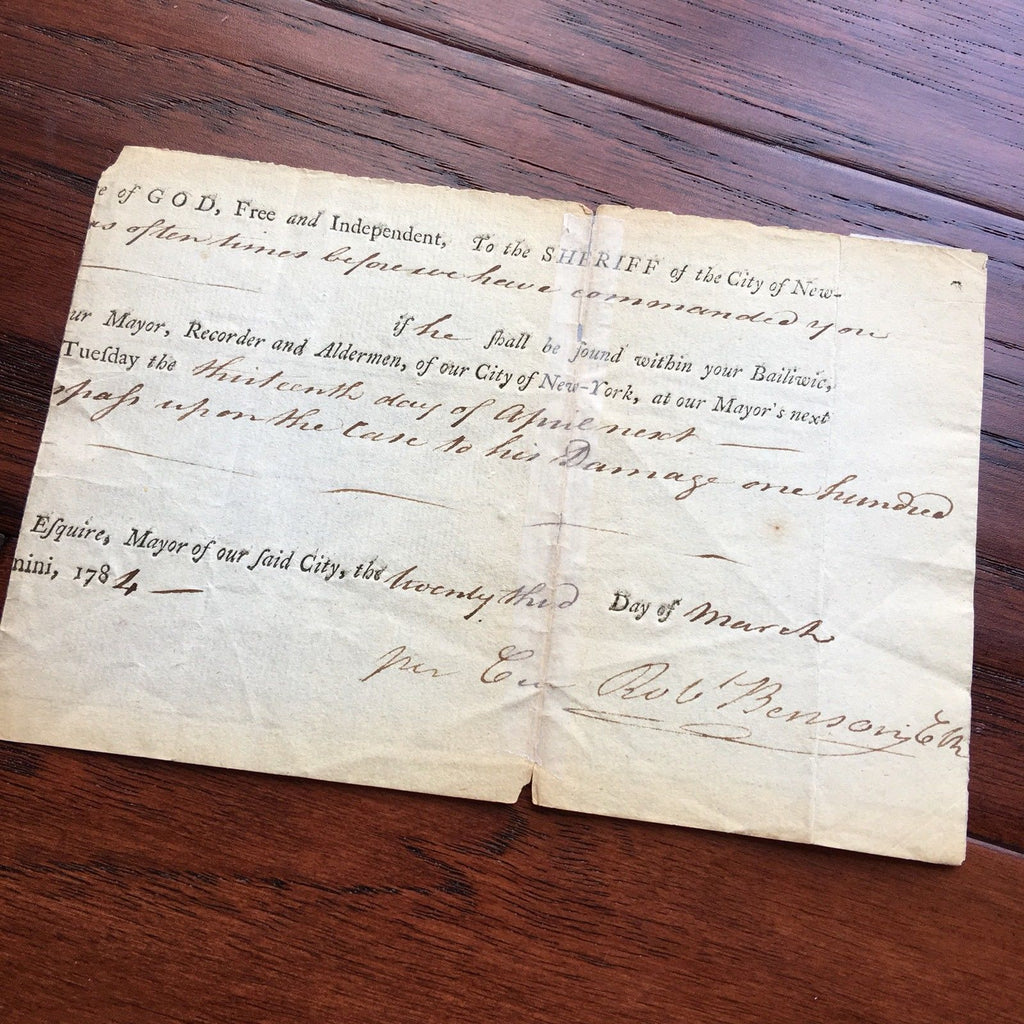 e of GOD, Free and Independent, To the SHERIFF of the City of New-
as often times before we have commanded you
if he ſhall be found within your Bailiwic,
ur Mayor, Recorder and Aldermen, of our City of New-York, at our Mayor's next
Tueſday the thirteenth day of April next —
ſpaſs upon the Case to his Damage one hundred
Eſquire, Mayor of our ſaid City, the twenty third Day of March
nini, 1784 —
per Cur Robt Benson, Clk